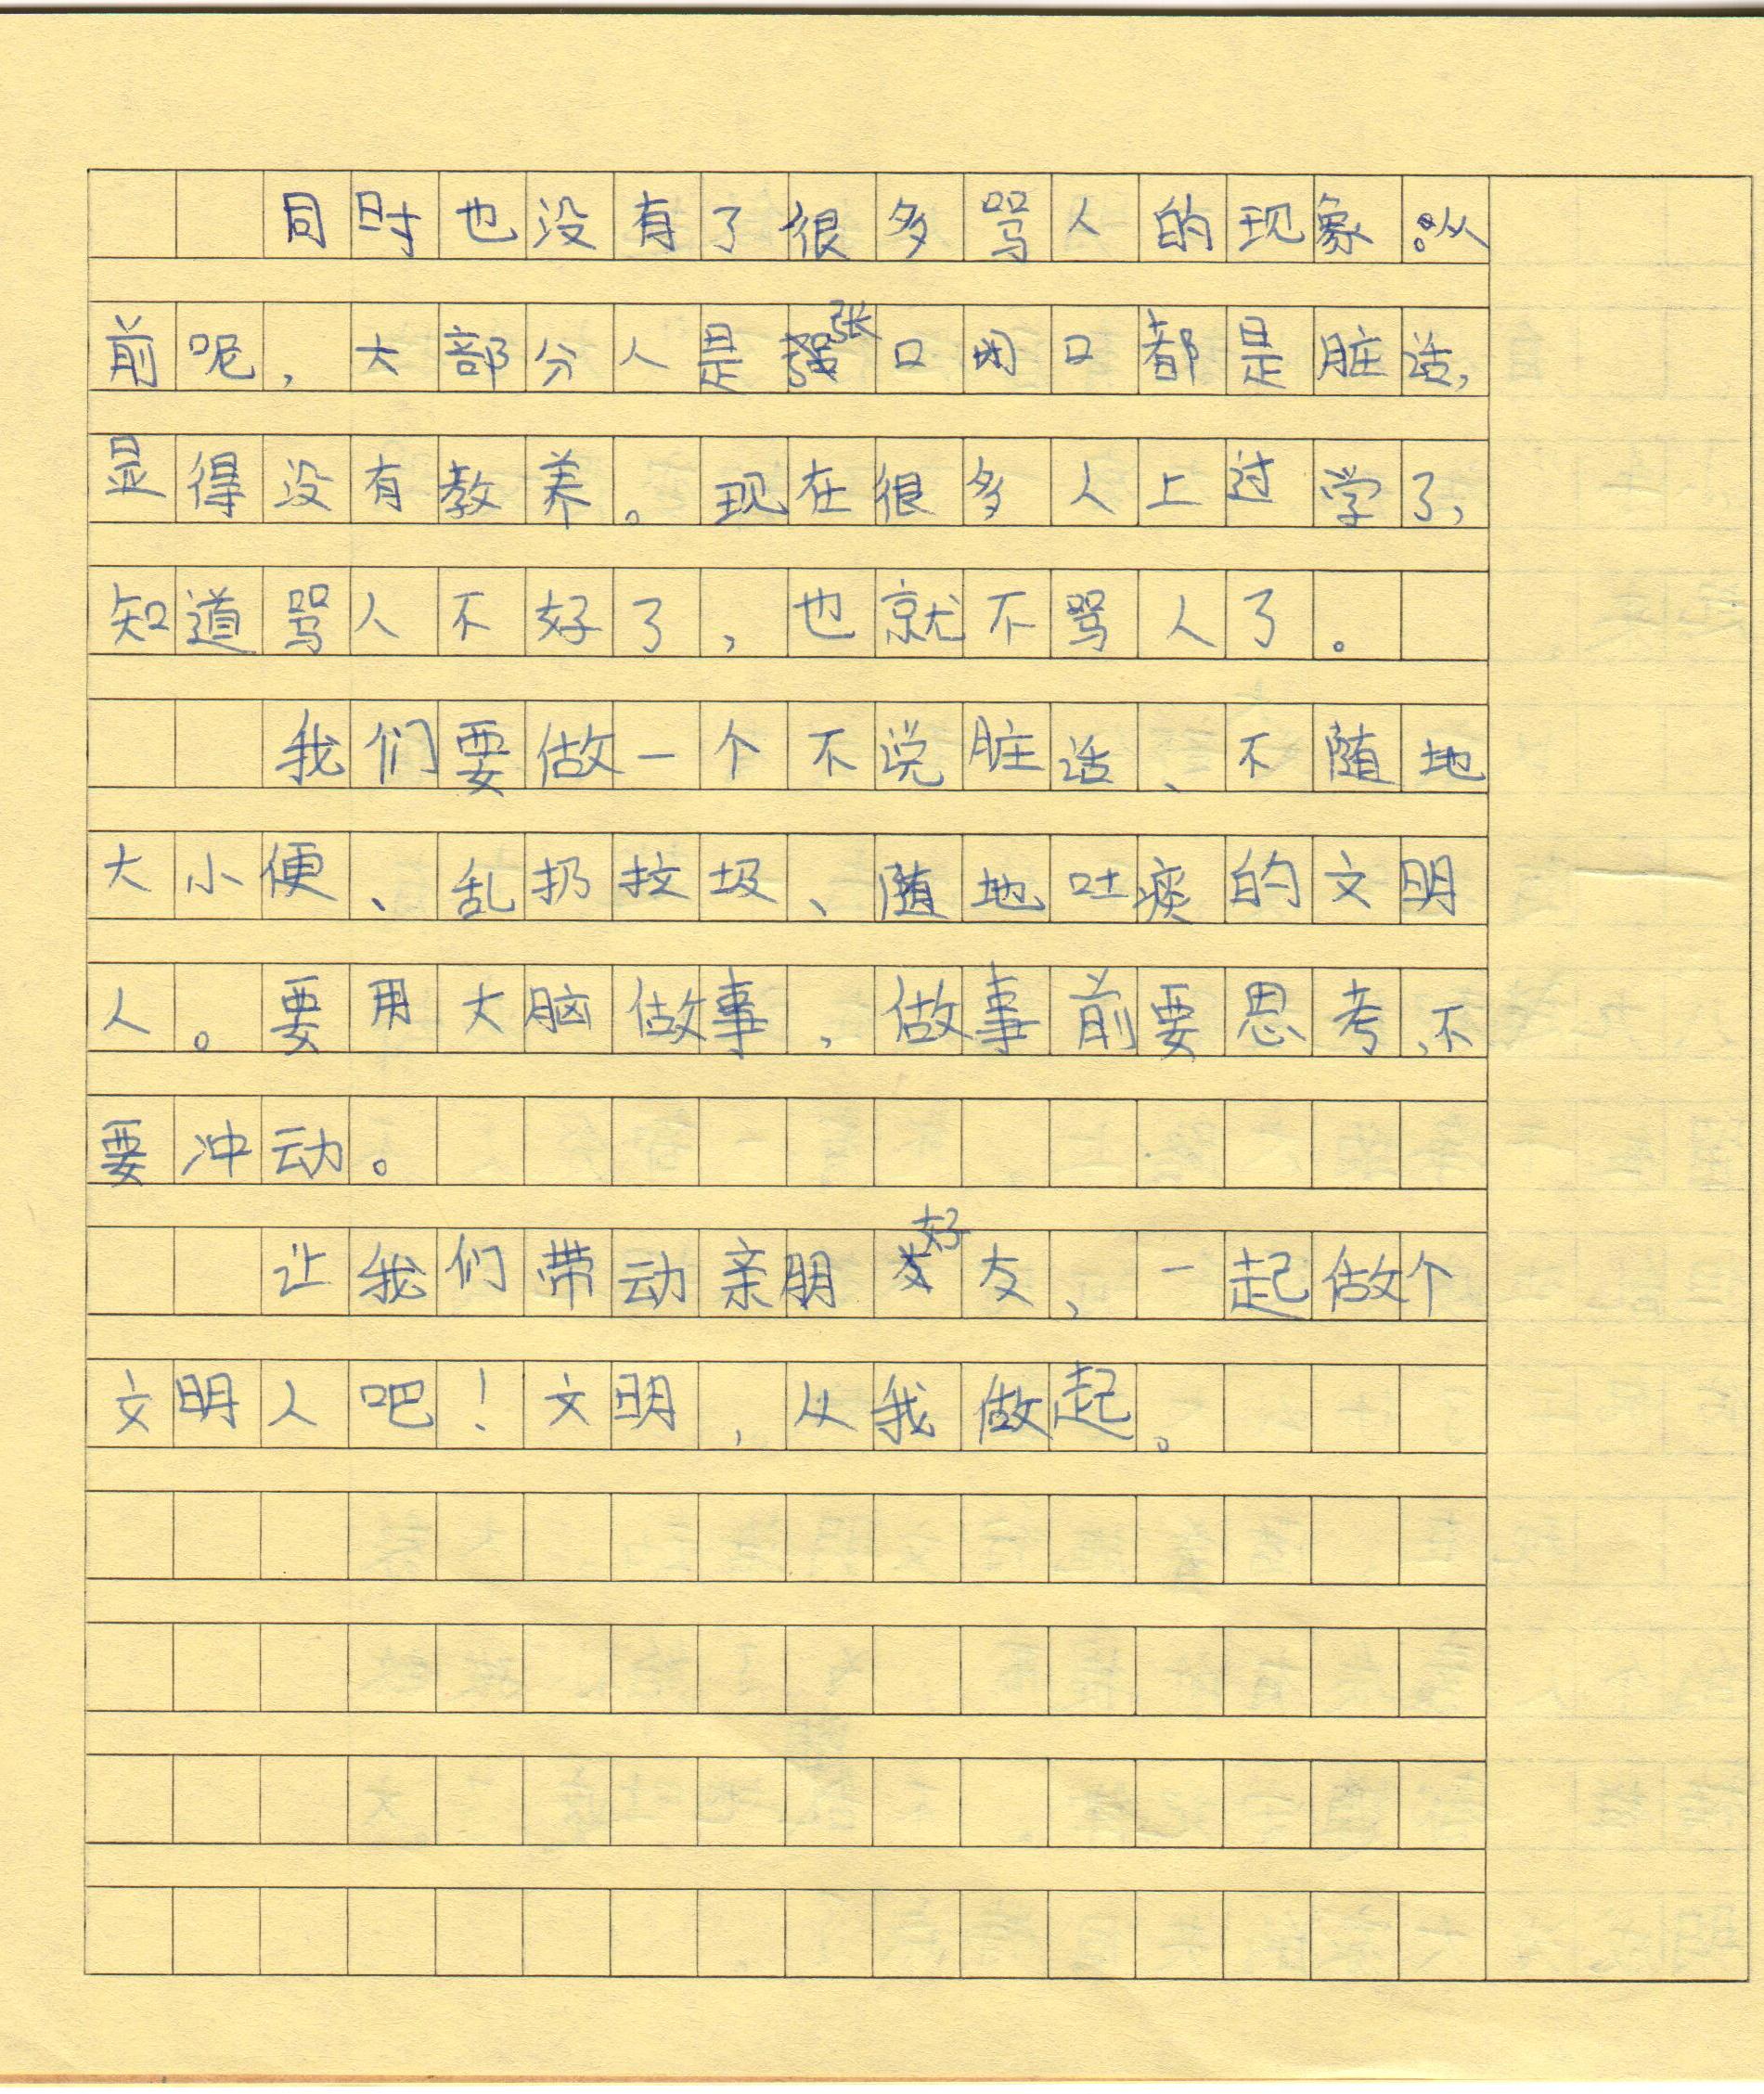 同时也没有了很多骂人的现象。从
前呢,大部分人是张口闭口都是脏话,
显得没有教养。现在很多人上过学了,
知道骂人不好了,也就不骂人了。
我们要做一个不说脏话、不随地
大小便、乱扔垃圾、随地吐痰的文明
人。要用大脑做事,做事前要思考,不
要冲动。
让我们带动亲朋好友,一起做个
文明人吧!文明,从我做起。